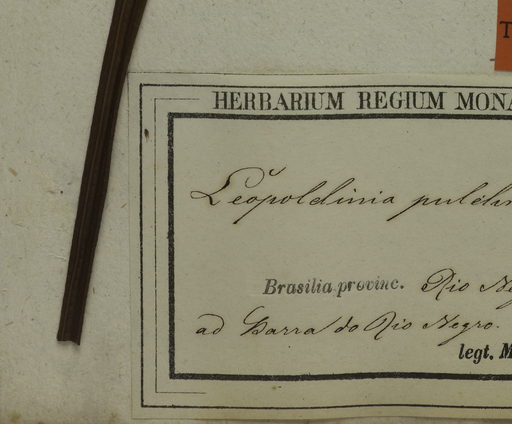 T
HERBARIUM REGIUM MONA
Leopoldinia pulch
Brasilia provinc. Rio Ne
ad Barra do Rio Negro.
legt. M